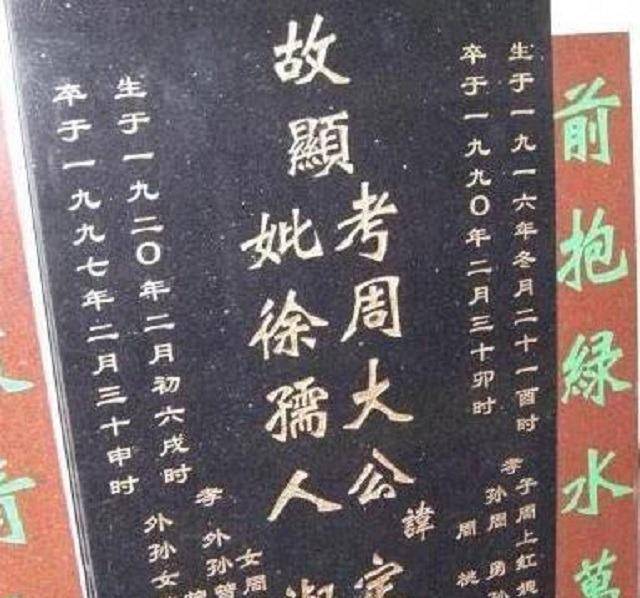 前抱綠水萬
生于一九一六年冬月二十一酉时
卒于一九九〇年二月三十卯时
孝子周上红
孙周勇孙
周
故顯
考周大公諱定
妣徐孺人淑
生于一九二〇年二月初六戌时
卒于一九九七年二月三十申时
孝女周
外孙
外孙女
青